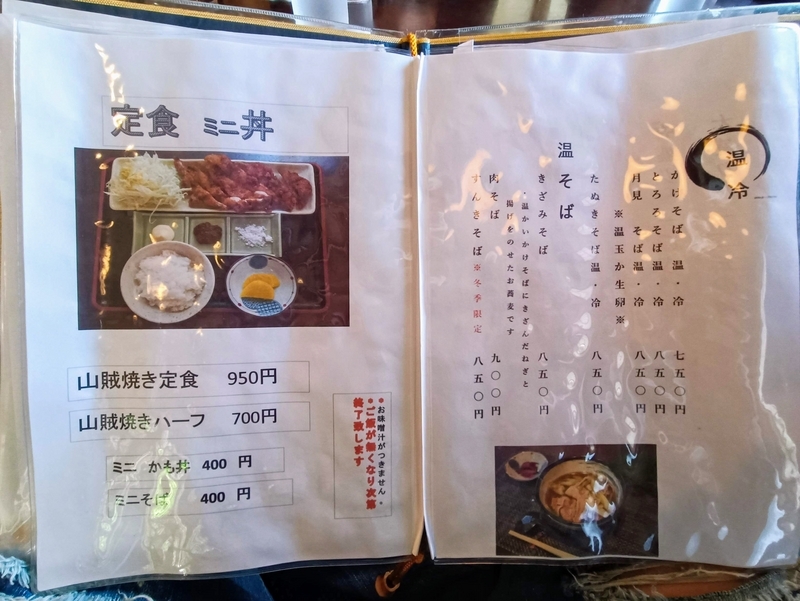 定食 ミニ丼
山賊焼き定食 950円
山賊焼きハーフ 700円
ミニ かも丼 400 円
ミニそば 400 円
●お味噌汁がつきません。
●ご飯が無くなり次第
終了致します
温
冷
かけそば 温・冷 七五〇円
とろろそば 温・冷 八五〇円
月見 そば 温・冷 八五〇円
※温玉か生卵※
たぬきそば 温・冷 八五〇円
温 そば
きざみそば 八五〇円
・温かいかけそばにきざんだねぎと
揚げをのせたお蕎麦です
肉そば 九〇〇円
すんきそば ※冬季限定 八五〇円